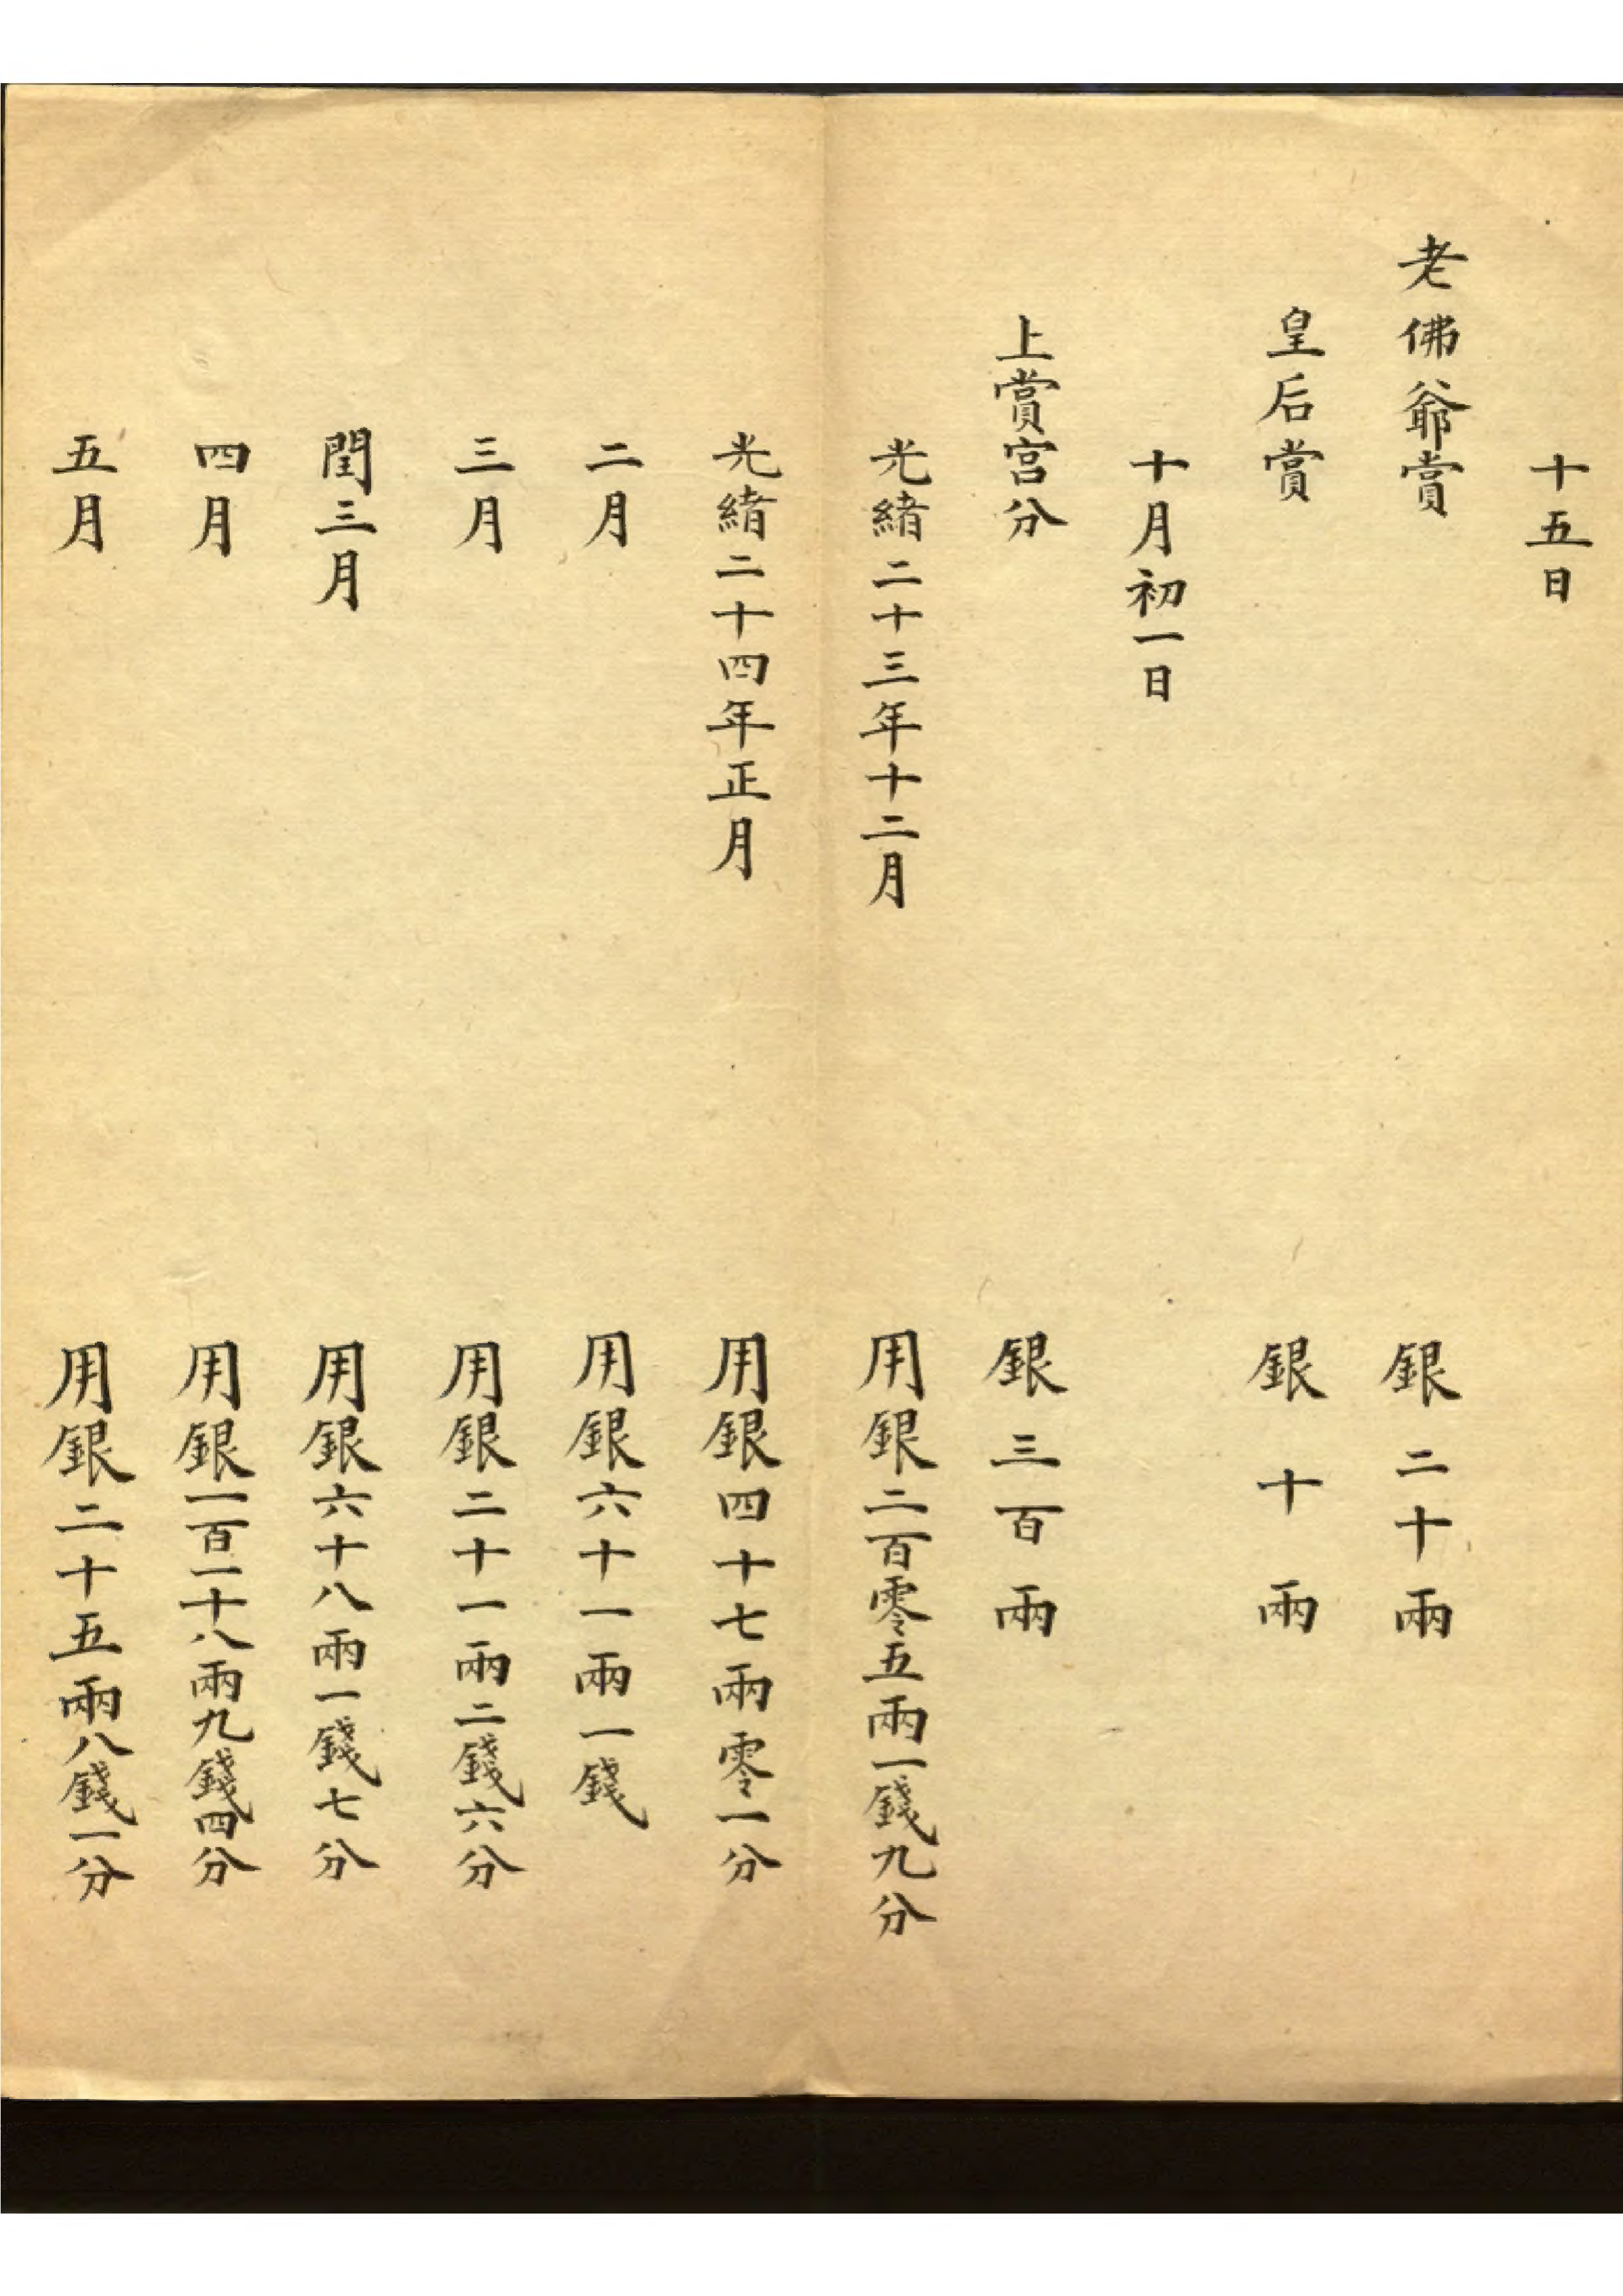 十五日
老佛爺賞 銀二十兩
皇后賞 銀十兩
十月初一日
上賞宮分 銀三百兩
光緒二十三年十二月 用銀二百零五兩一錢九分
光緒二十四年正月 用銀四十七兩零一分
二月 用銀六十一兩一錢
三月 用銀二十一兩二錢六分
閏三月 用銀六十八兩一錢七分
四月 用銀一百一十八兩九錢四分
五月 用銀二十五兩八錢一分